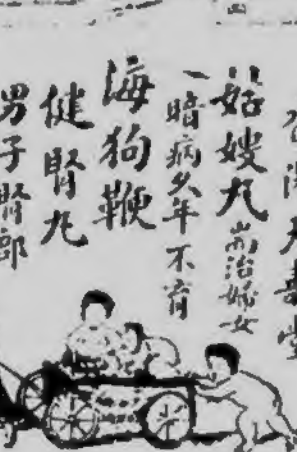 大壽堂
姑嫂丸 耑治婦女
一暗病久年不育
海狗鞭
健腎丸
男子腎部